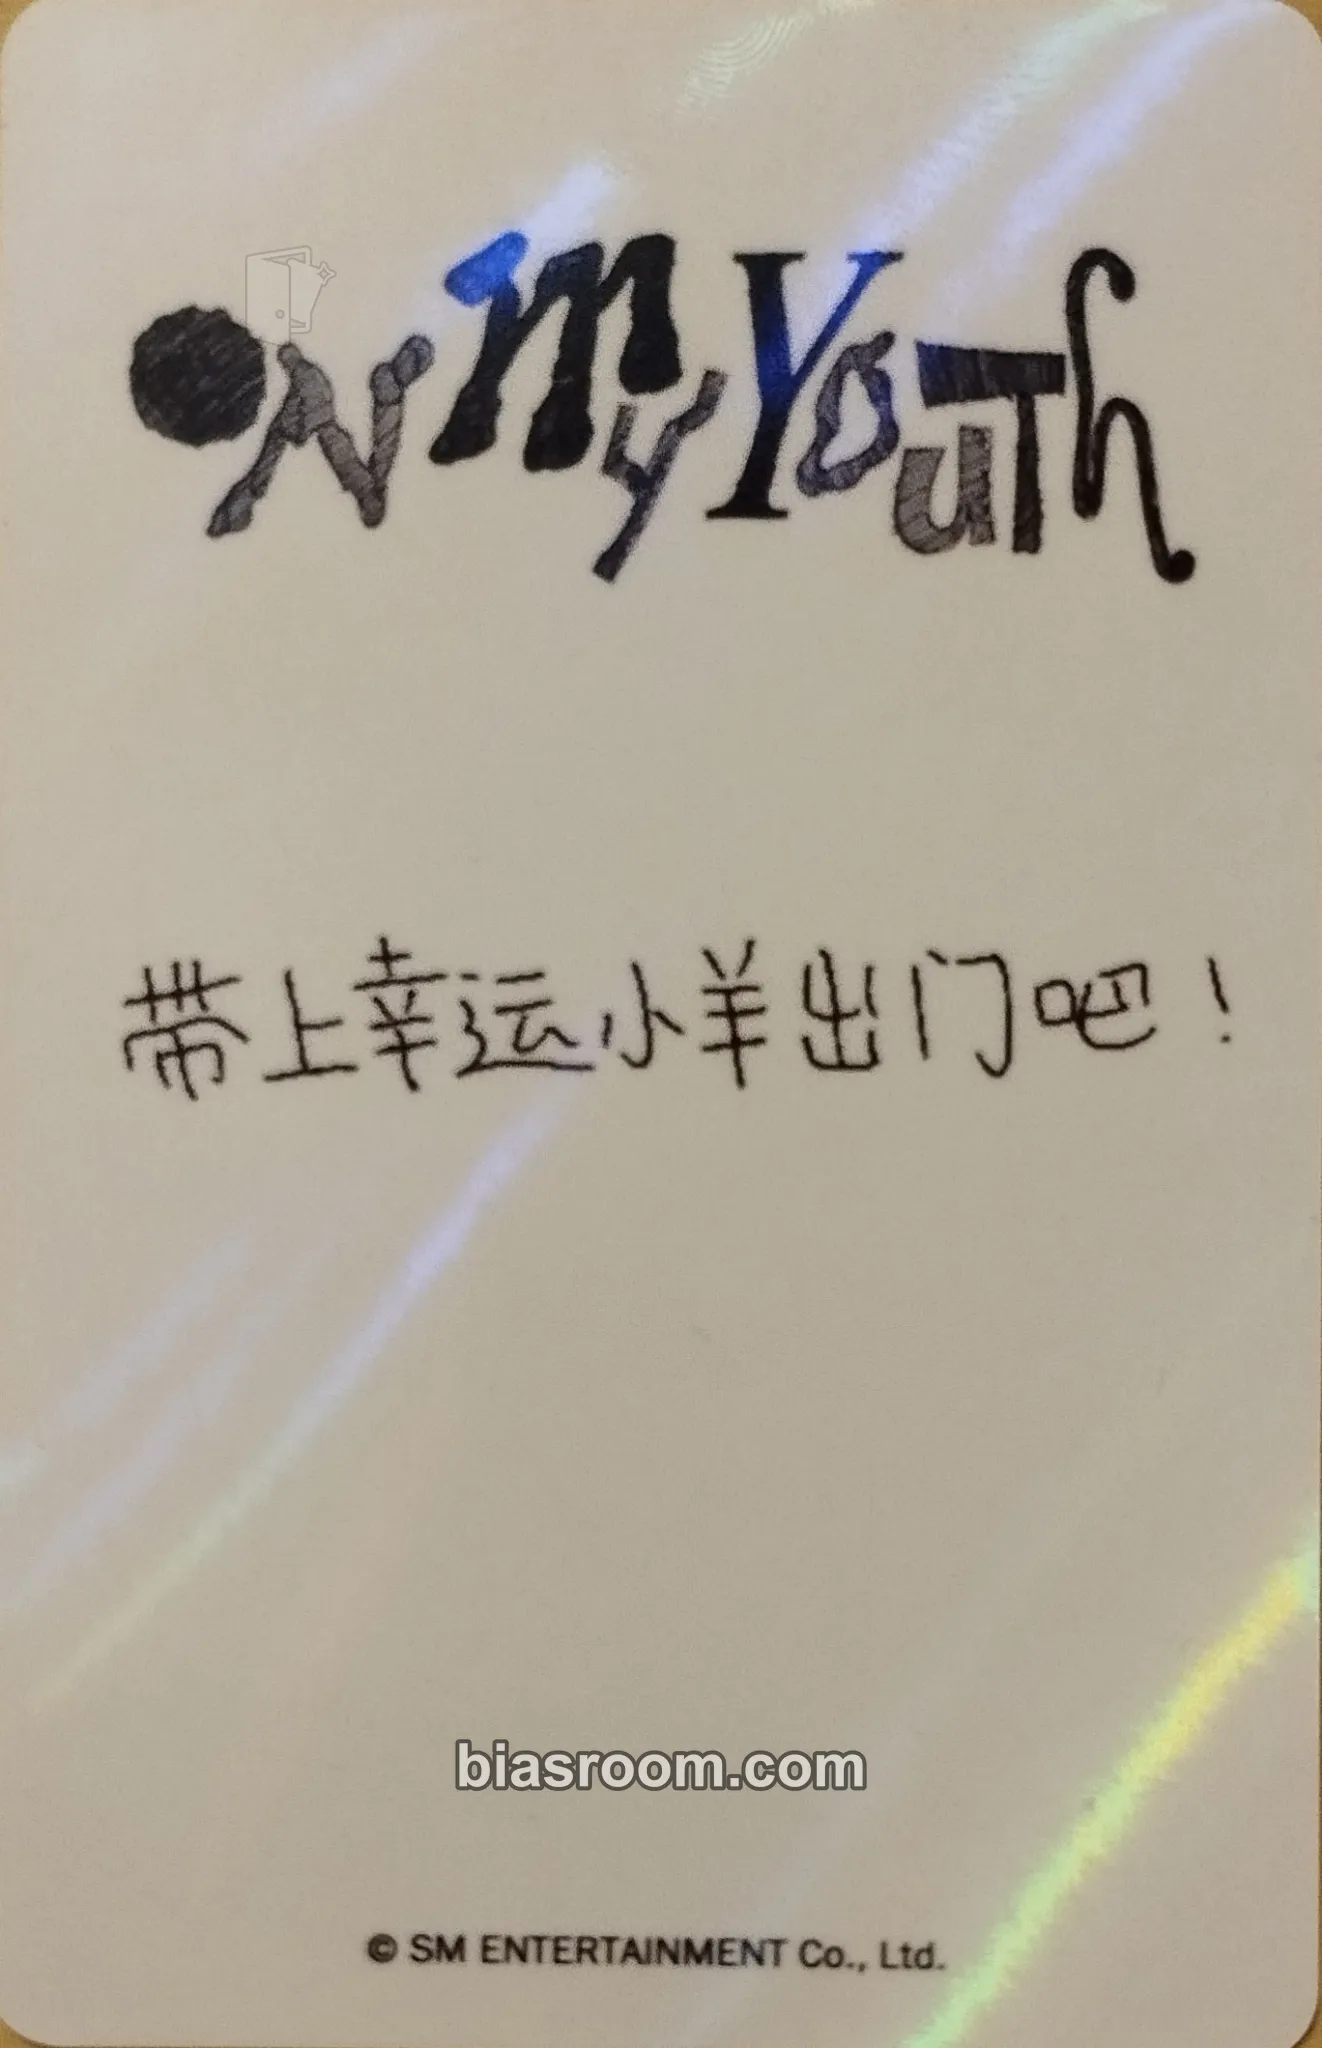 ON my YOUTh
带上幸运小羊出门吧！
biasroom.com
© SM ENTERTAINMENT Co., Ltd.